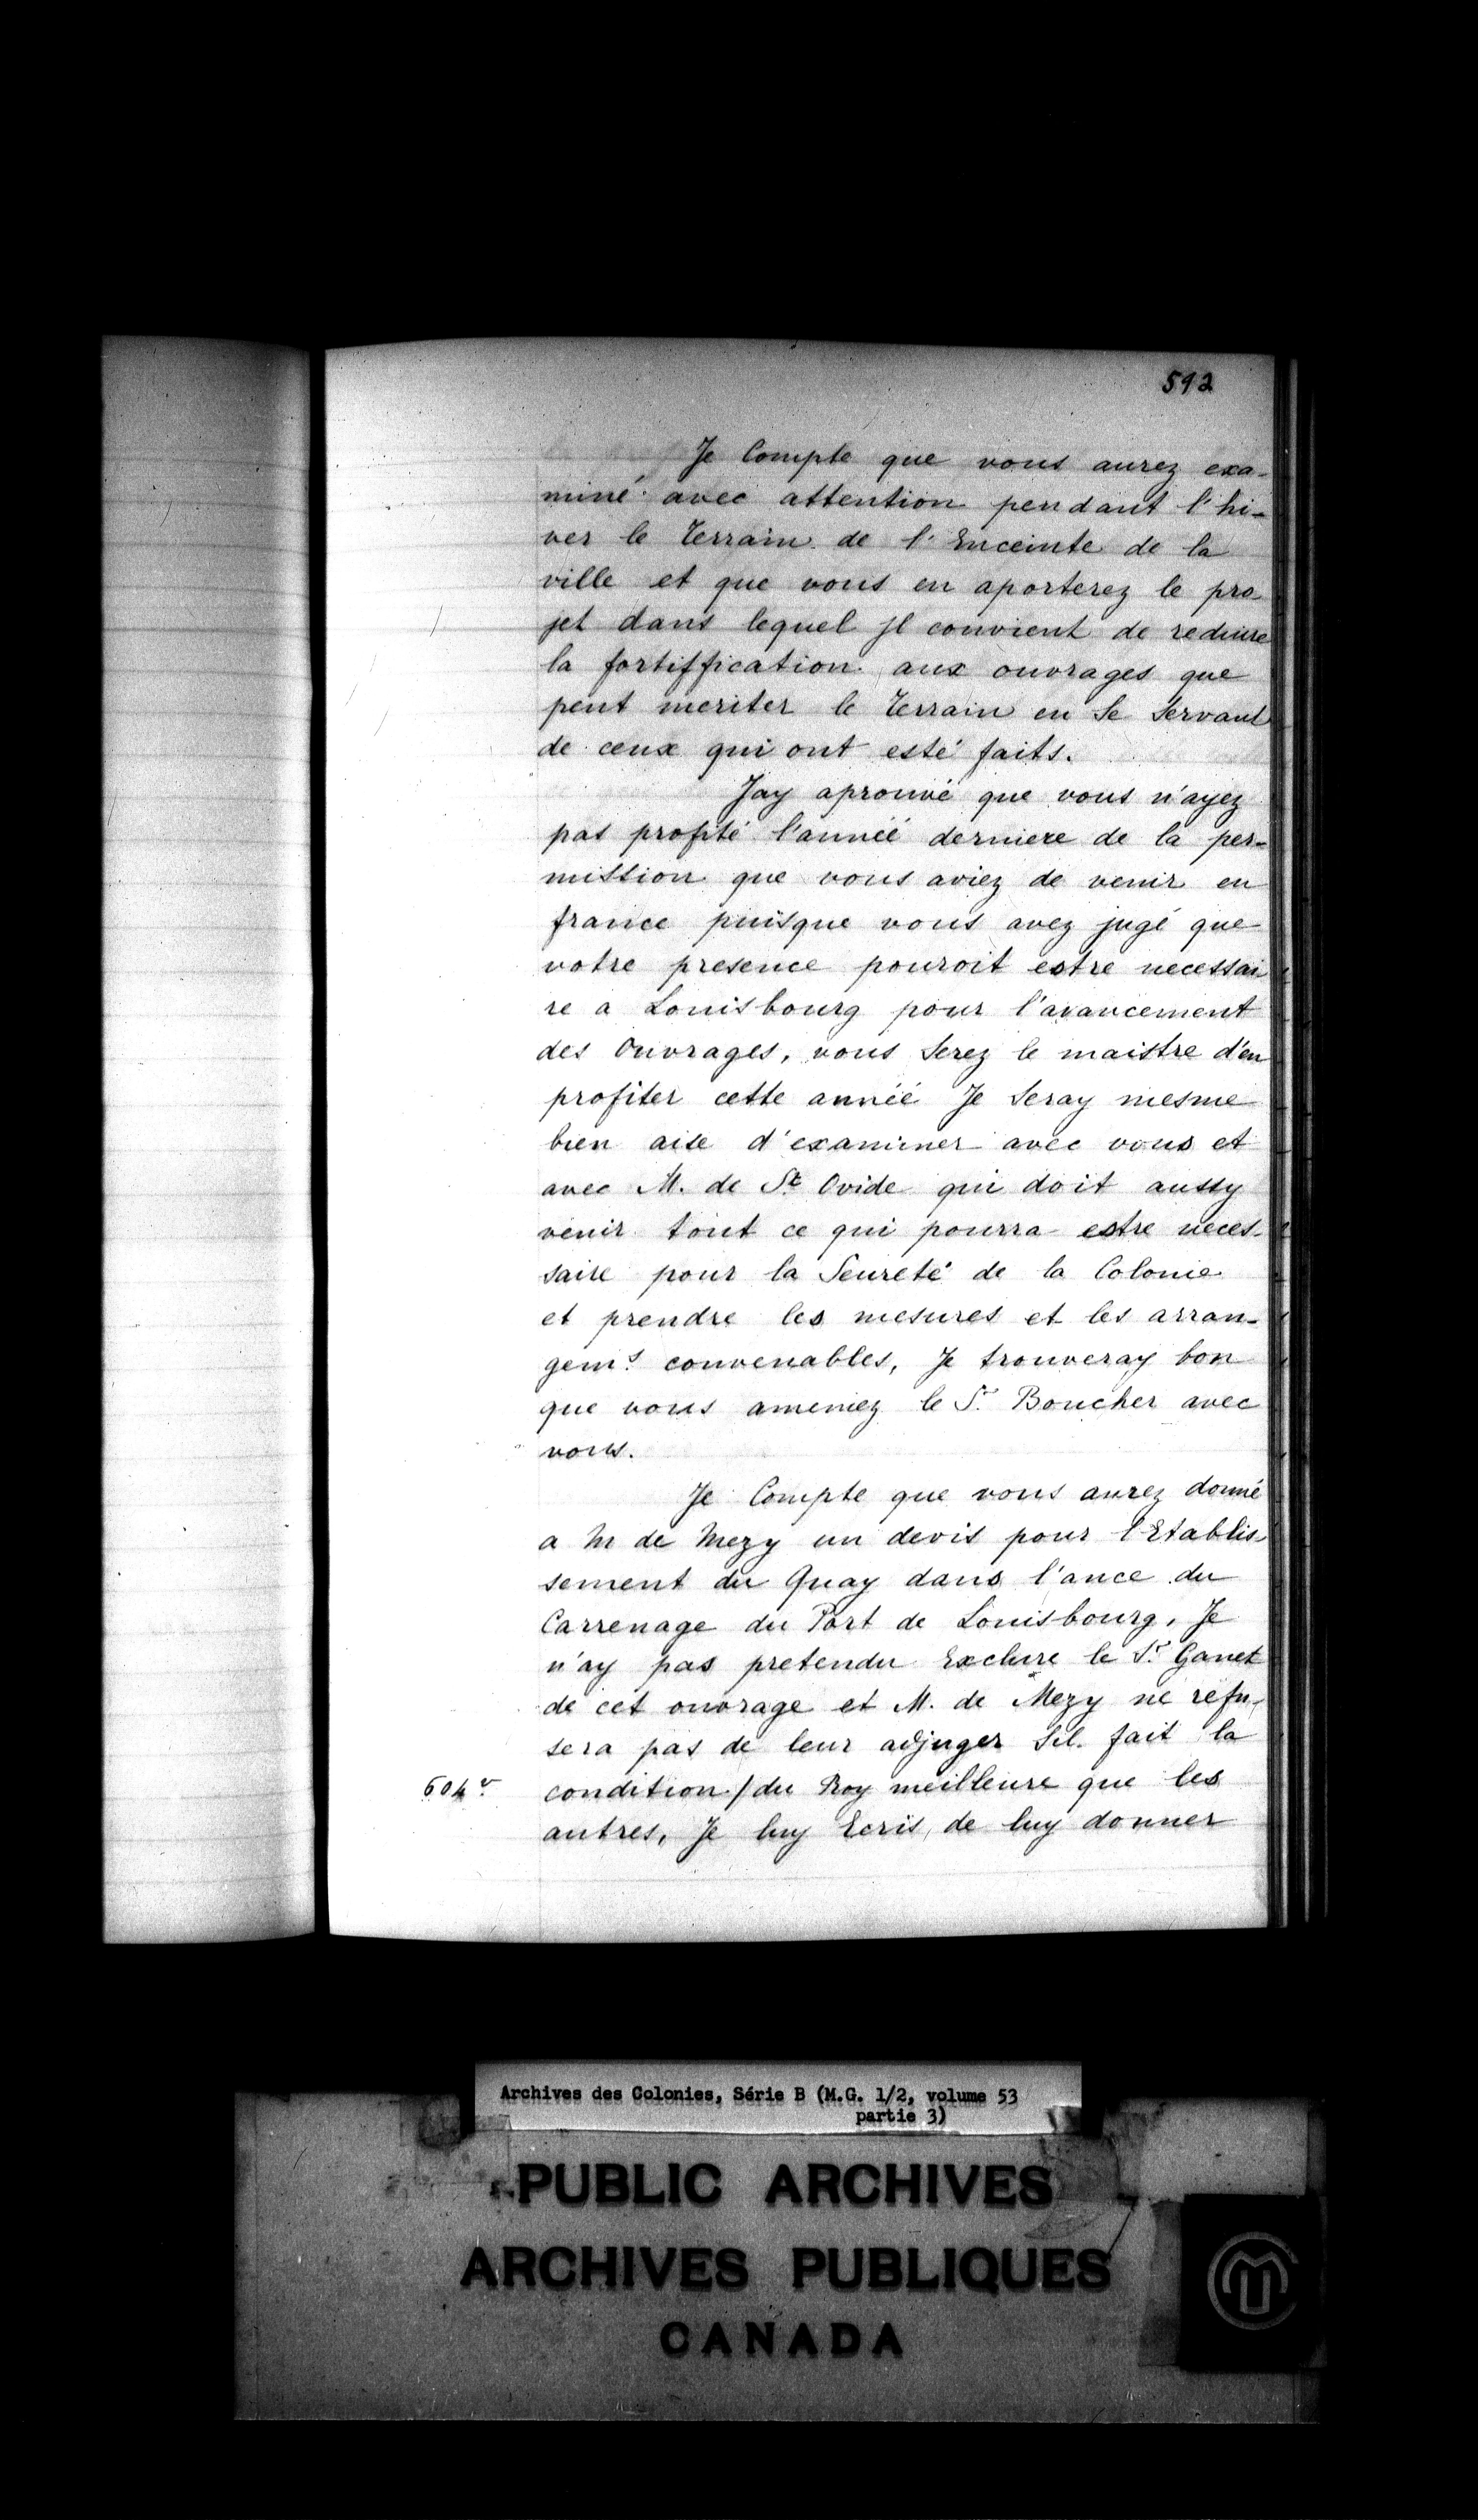 592
Je Compte que vous aurez exa-
miné avec attention pendant l'hi-
ver le terrain de l'Enceinte de la
ville et que vous en aporterez le pro-
jet dans lequel Jl convient de reduire
la fortiffication aux ouvrages que
peut meriter le terrain en Se Servant
de ceux qui ont esté faits.
Jay aprouvé que vous n'ayez
pas profité l'annéé derniere de la per-
mission que vous aviez de venir en
france puisque vous avez jugé que
votre presence pouroit estre necessai
re a Louisbourg pour l'avancement
des Ouvrages, vous Serez le maistre d'en
profiter cette annéé Je Seray mesme
bien aise d'examiner avec vous et
avec M. de St Ovide qui doit aussy
venir tout ce qui pourra estre neces-
saire pour la Seureté de la Colonie
et prendre les mesures et les arran-
gem.s convenables, Je trouveray bon
que vous ameniez le S.r Boucher avec
vous.
Je Compte que vous aurez donné
a M de Mezy un devis pour l'Etablis-
sement du Quay dans l'ance du
Carrenage du Port de Louisbourg, Je
n'ay pas pretendu Exclure le S.r Ganet
de cet ouvrage et M. de Mezy ne refu-
sera pas de leur adjuger Sil fait la
604 v. condition/du Roy meilleure que les
autres, Je luy Ecris de luy donner
Archives des Colonies, Série B (M.G. 1/2, volume 53
partie 3)
PUBLIC ARCHIVES
ARCHIVES PUBLIQUES
CANADA